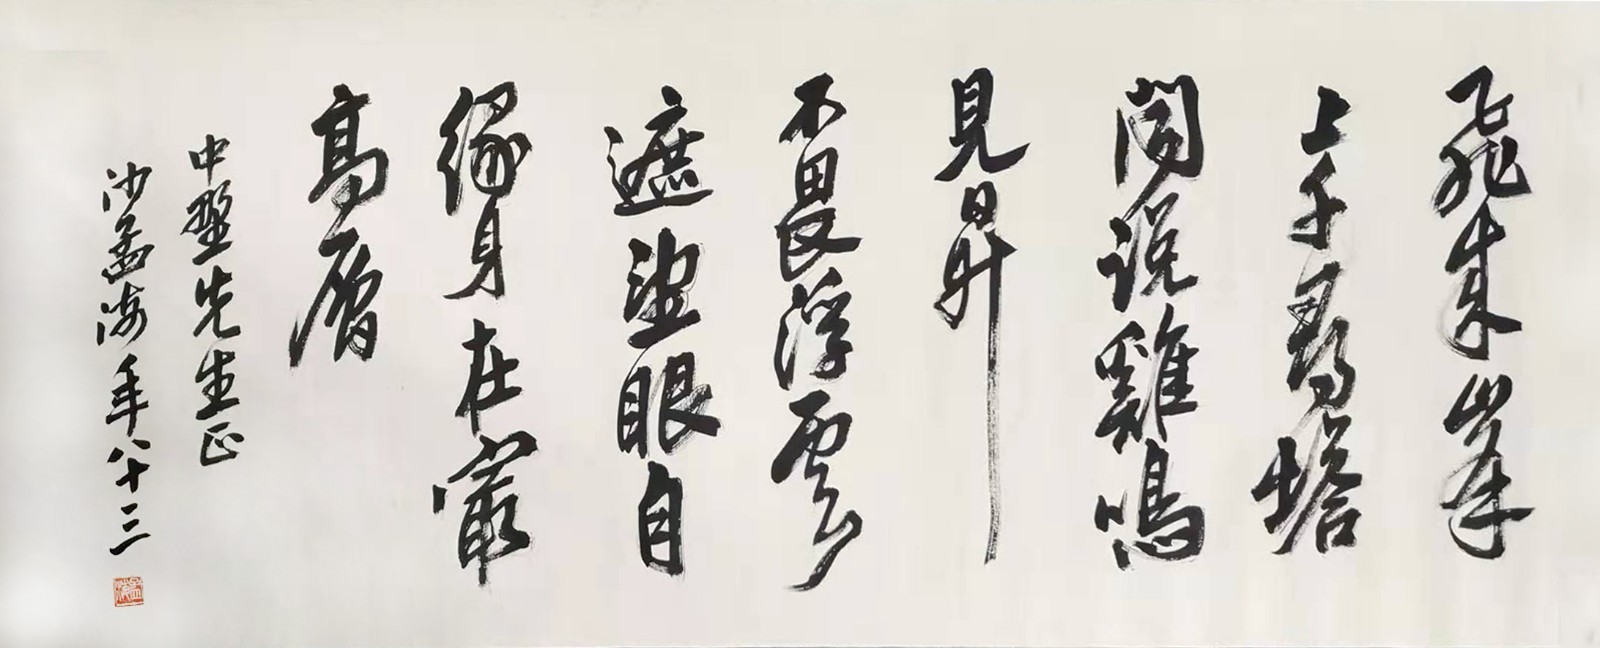 飛来峯
上千尋塔
聞説雞鳴
見日昇
不畏浮雲
遮望眼自
緣身在最
高層
中堅先生正
沙孟海年八十三